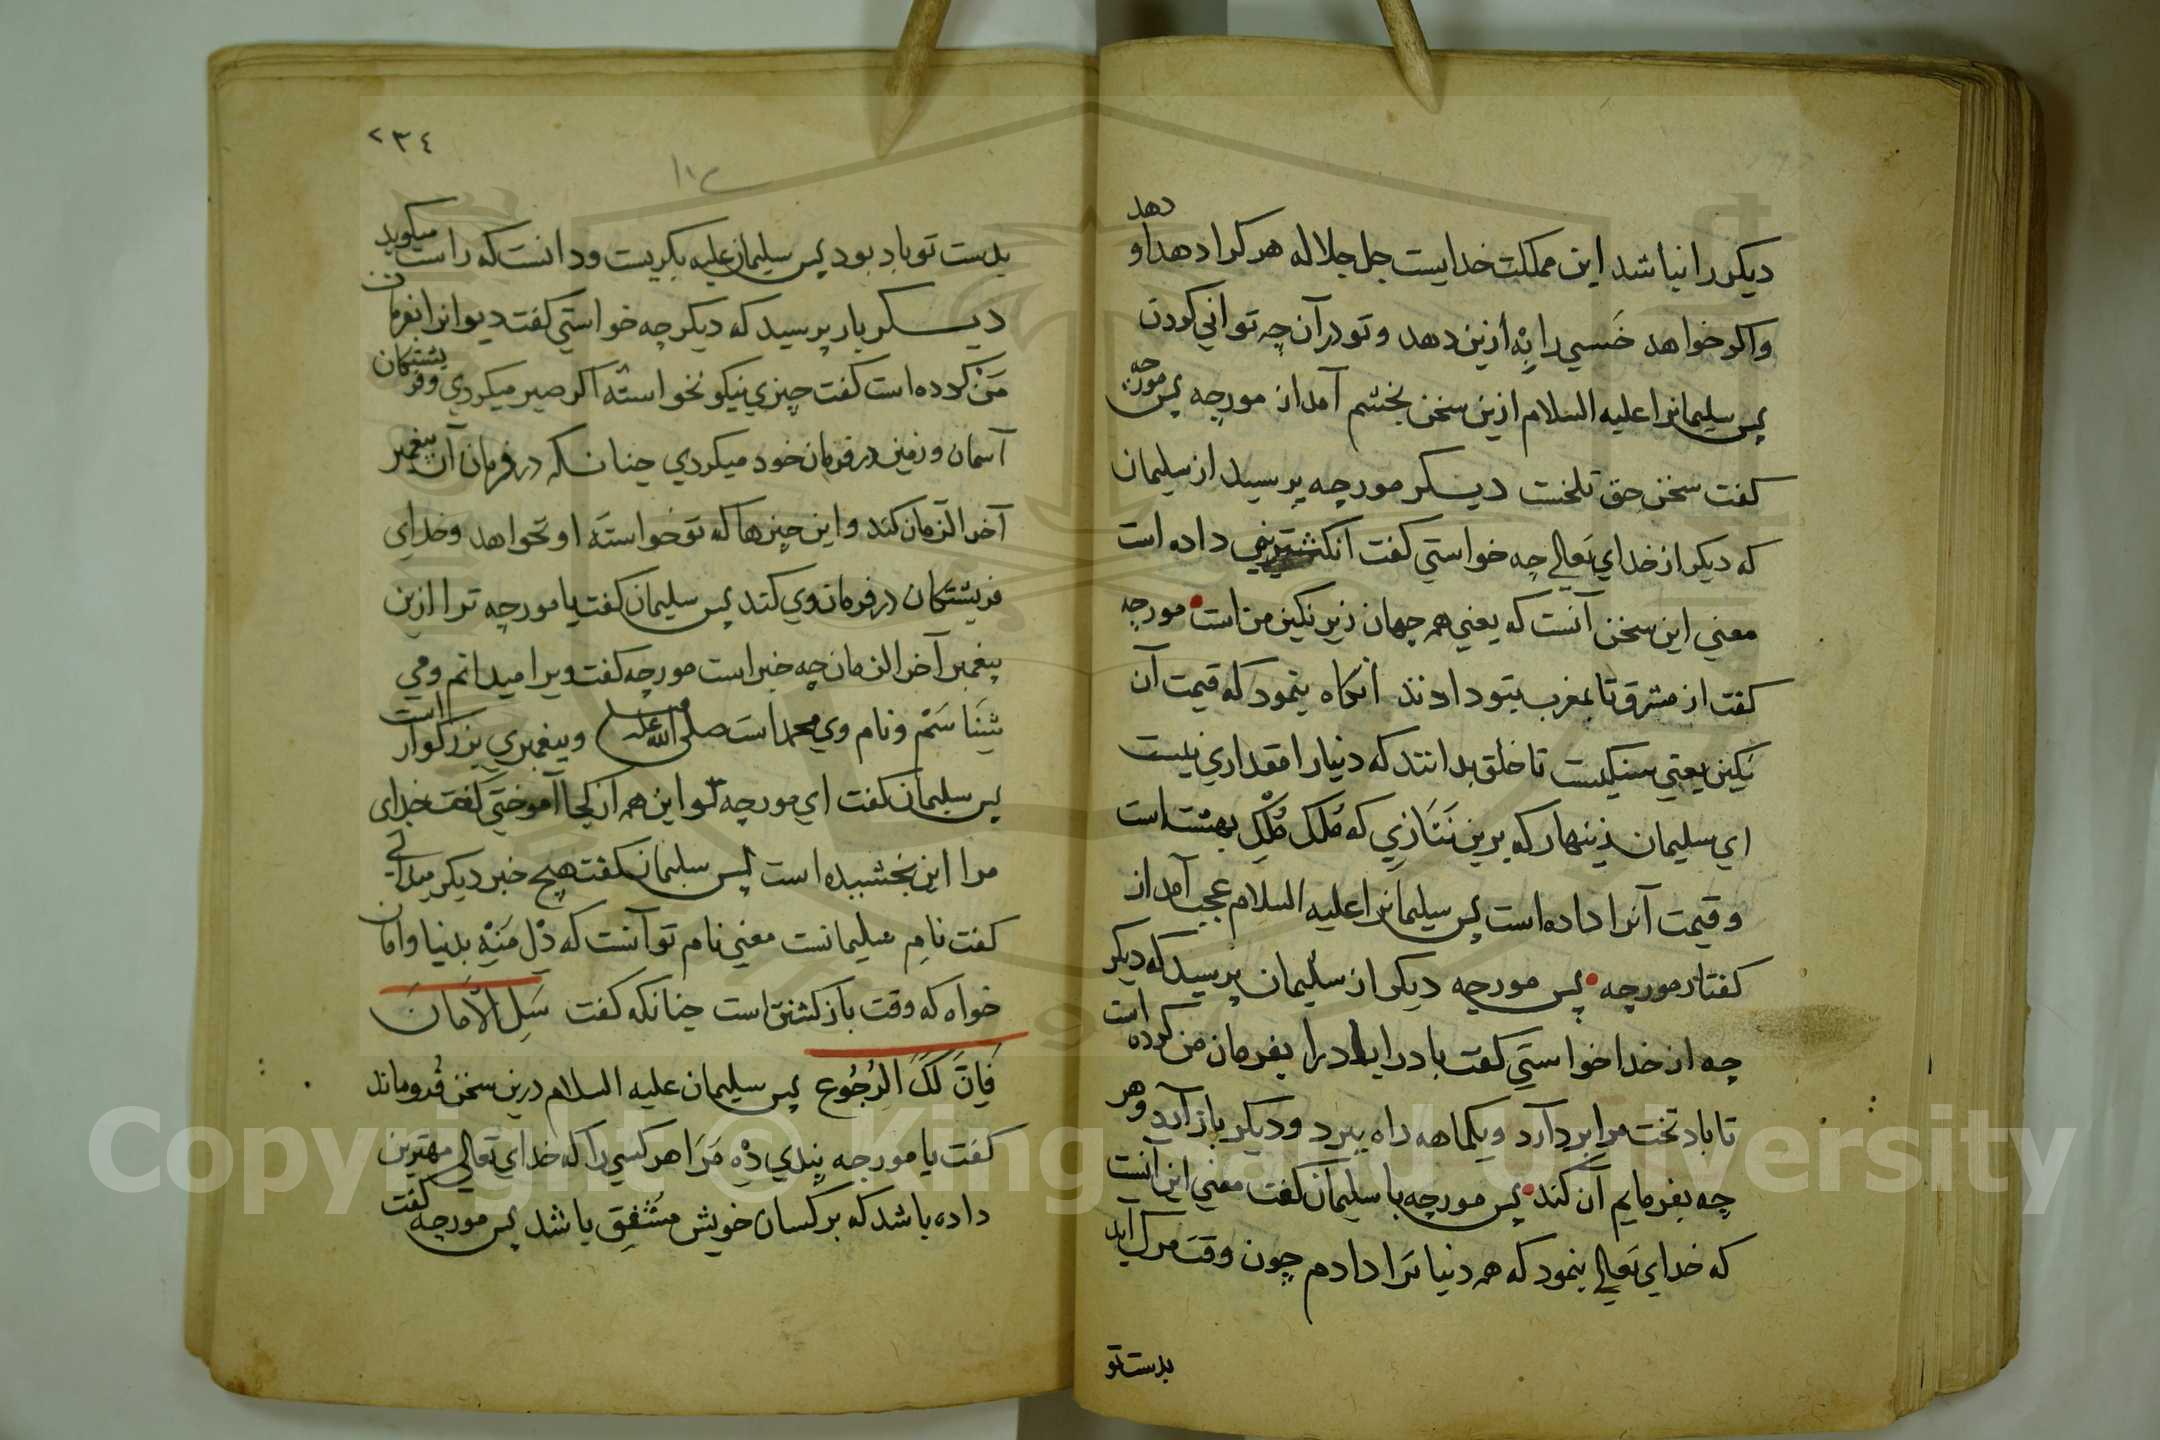 دیکر را نباشد این مملکت خدایست جل جلاله هر کرا دهد او دهد
واکر خواهد خسي را بِه ازین دهد و تو در آن چه تواني کردن
پس سلیمانرا علیه السلام ازین سخن بخشم آمد از مورچه پس مورچه
کفت سخن حق تلخست دیکر مورچه پرسید از سلیمان
که دیکر از خداي تعالی چه خواستي کفت انکشتریني داده است
معني این سخن آنست که یعني همه جهان زیر نکین من است مورچه
کفت از مشرق تا بمغرب بتو دادند انکاه بنمود که قیمت آن
نکین یعني سنکیست تا خلق بدانند که دنیا را مقداري نیست
اي سلیمان زینهار که برین نَنَازي که مُلک مُلْكِ بهشت است
و قیمت آنرا داده است پس سلیمانرا علیه السلام عجب آمد از
کفتار مورچه پس مورچه دیکر از سلیمان پرسید که دیکر
چه از خدا خواستي کفت باد را بفرمان من کرده است
تا باد تخت مرا بردارد و یکماهه راه ببرد و دیکر باز آرد و هر
چه بفرمایم آن کند پس مورچه با سلیمان کفت معني این آنست
که خداي تعالی بنمود که همه دنیا ترا دادم چون وقت مرك آید
بدست تو
٢٣٤
بدست تو باد بود پس سلیمان علیه بکریست و دانست که راست میکوید
دیکر بار پرسید که دیکر چه خواستي کفت دیوانرا بفرمان
من کرده است کفت چیزي نیکو نخواستهٔ اکر صبر میکردي و فریشتکان
آسمان و زمین در فرمان خود میکردي چنانکه در فرمان آن پیغمبر
آخر الزمان کند و این چیزها که تو خواستهٔ او نخواهد و خداي
فریشتکان در فرمان وي کند پس سلیمان کفت یا مورچه ترا ازین
پیغمبر آخر الزمان چه خبر است مورچه کفت ویرا میدانم و مي
شِنَاسَمْ و نام وي محمد است صلی الله علیه وسلم و پیغمبري بزرکوار است
پس سلیمان کفت اي مورچه تو این همه از کجا آموختي کفت خداي
مرا این بخشیده است پس سلیمان کفت هیچ خبر دیکر میداني
کفت نامِ سلیمانست معني نام تو آنست که دْل مَنِهْ بدنیا و امان
خواه که وقت باز کشتن است چنانکه کفت سَلِ الْاَمَانَ
فَاِنَّ لَكَ الرُجُوع پس سلیمان علیه السلام درین سخن فُرو ماند
کفت یا مورچه پندي دِهِ مَرَا هر کسي را که خداي تعالی مهتریت
داده باشد که بر کسان خویش مُشْفِق باشد پس مورچه کفت